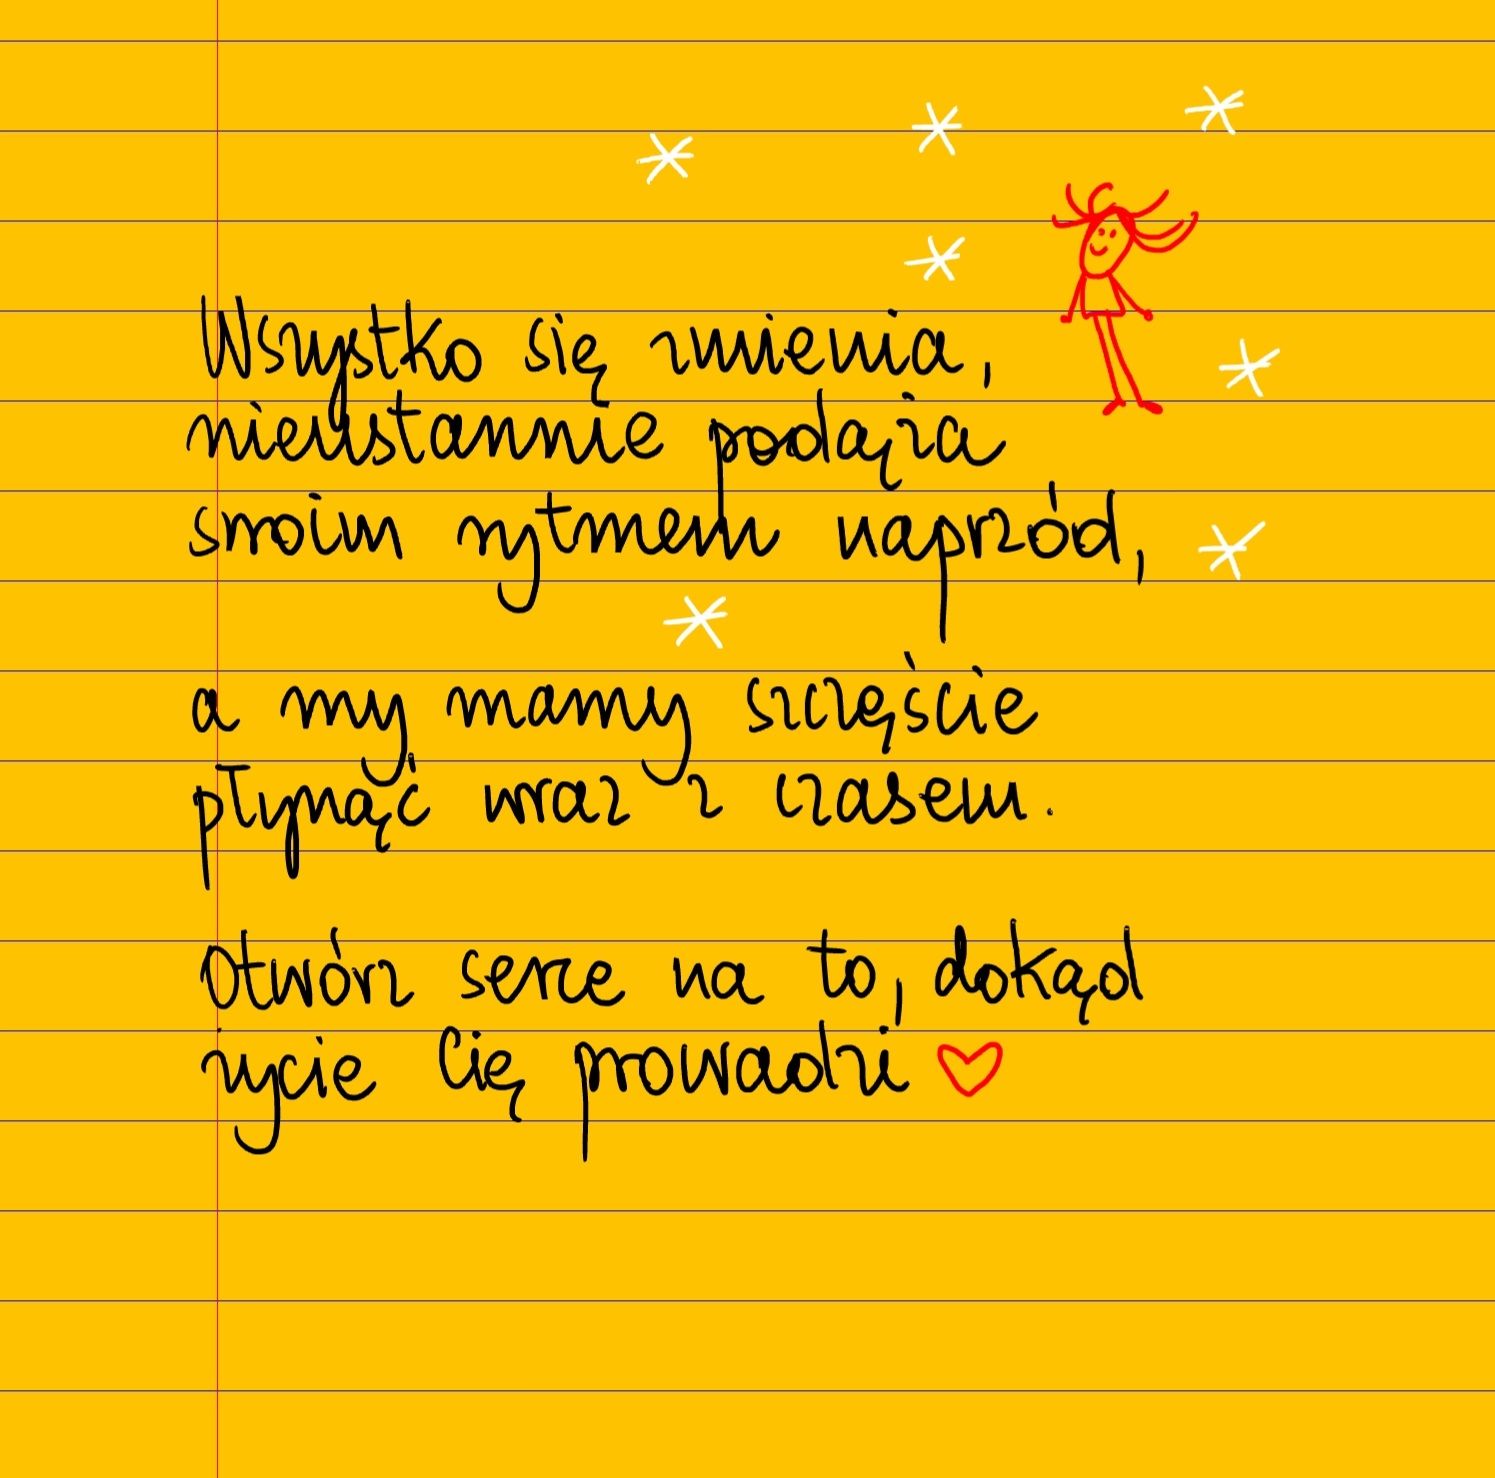 Wszystko się zmienia,
nieustannie podąża
swoim rytmem naprzód,
a my mamy szczęście
płynąć wraz z czasem.
Otwórz serce na to, dokąd
życie Cię prowadzi